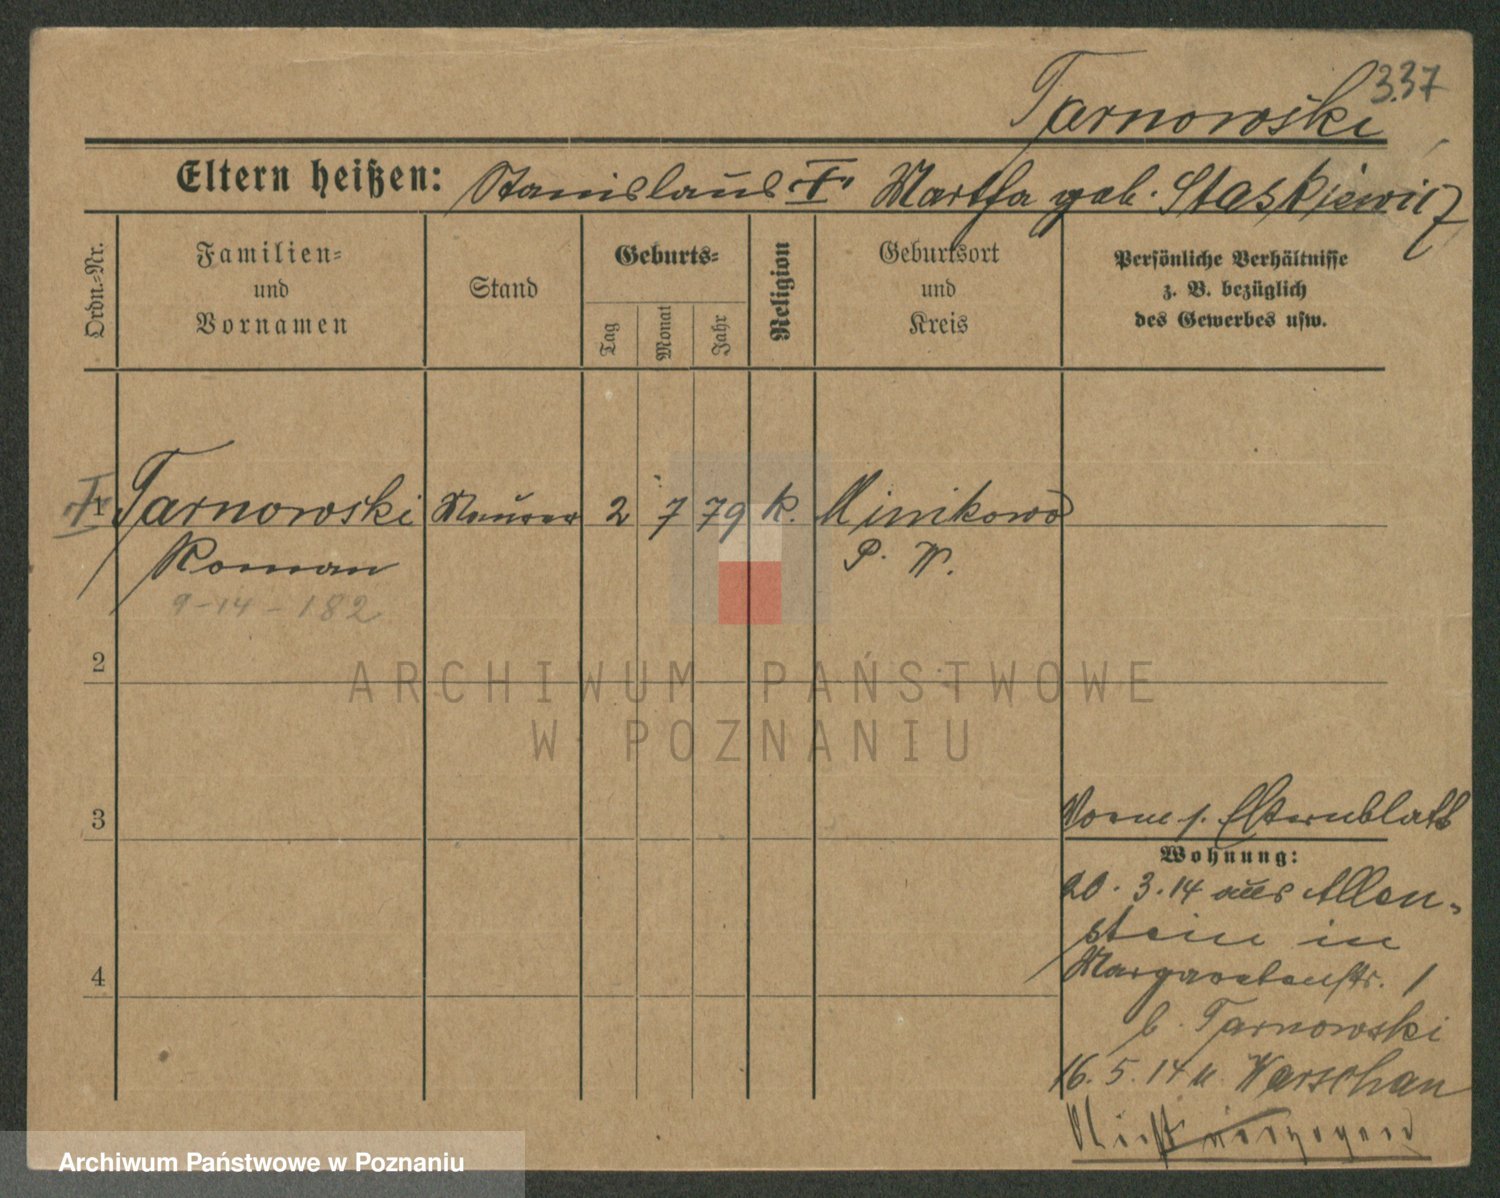 337
Tarnowski
Eltern heißen: Stanislaus I Martha geb. Staskiewicz
Ordn.-Nr.
Familien-
und
Vornamen
Stand
Geburts-
Tag
Monat
Jahr
Religion
Geburtsort
und
Kreis
Persönliche Verhältnisse
z. B. bezüglich
des Gewerbes usw.
1 Tarnowski Maurer 2 7 79 k. Minikowo
Roman P. W.
9-14-182
2
ARCHIWUM PAŃSTWOWE
W POZNANIU
3
Elternblatt
Wohnung:
20. 3. 14 aus Allen-
stein in
Margaretenstr. 1
b. Tarnowski
16. 5. 14 n. Warschau
4
Nicht
Archiwum Państwowe w Poznaniu